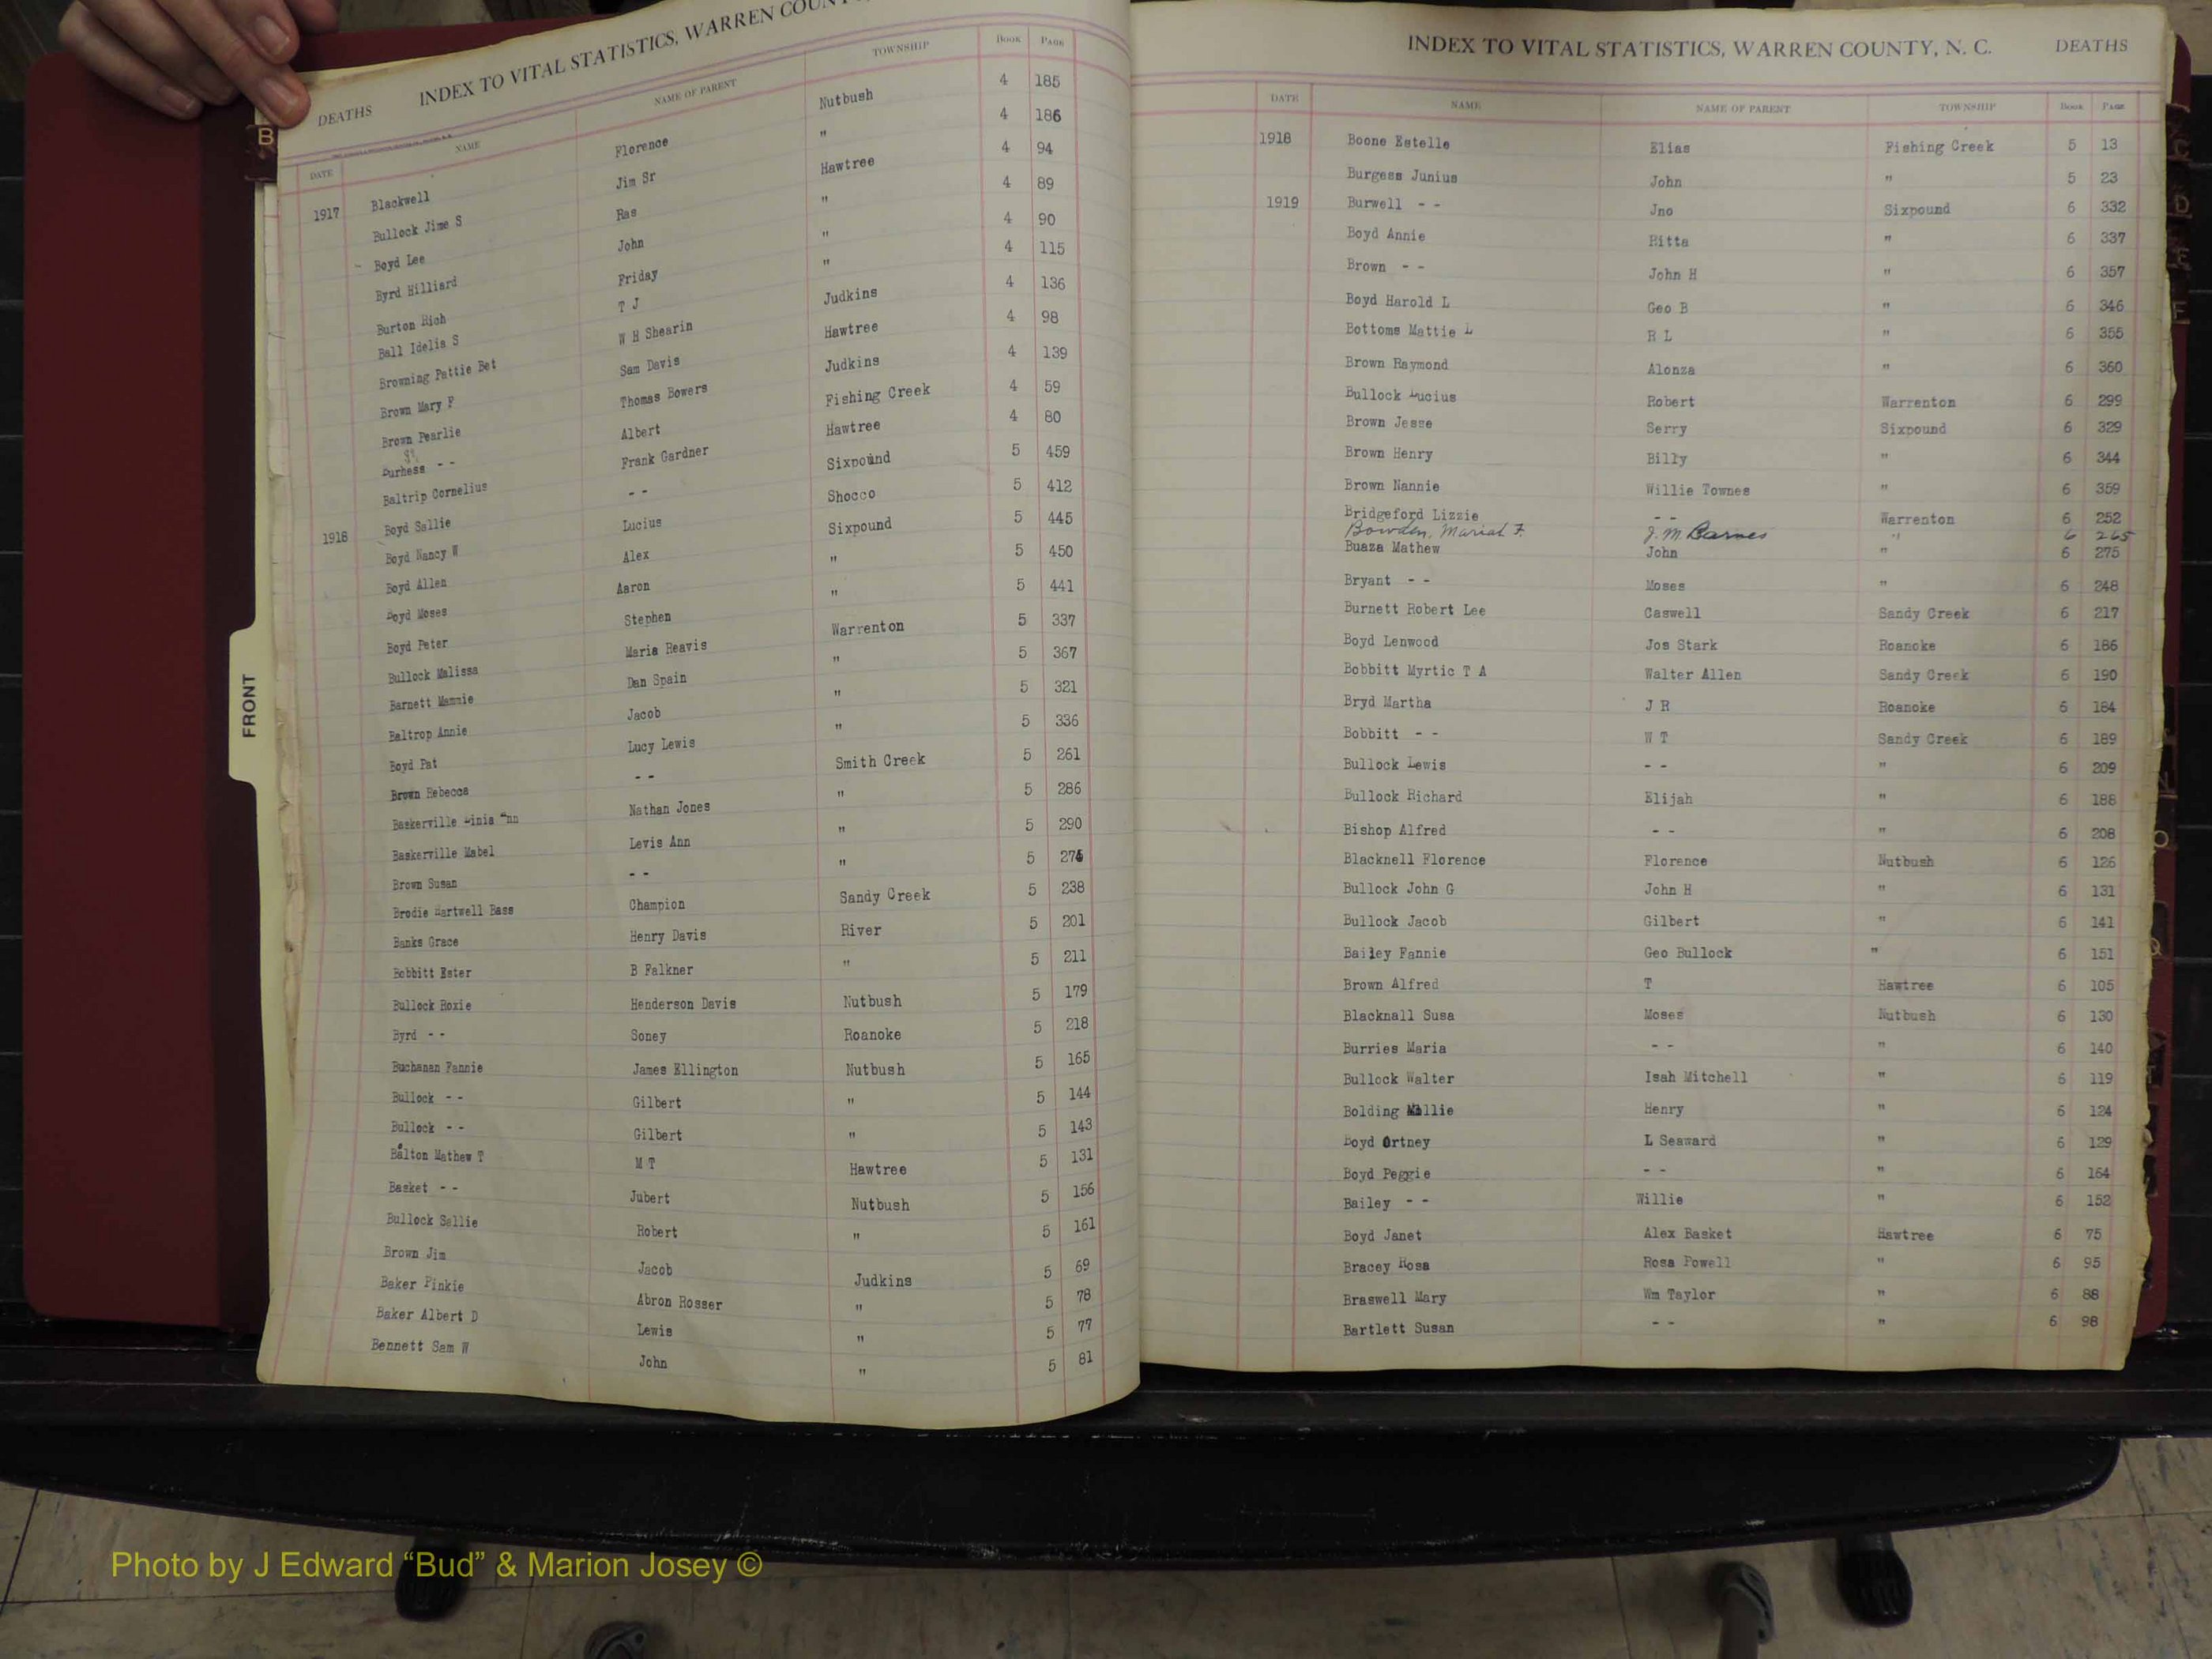 DEATHS INDEX TO VITAL STATISTICS, WARREN COUNTY,
DATE NAME NAME OF PARENT TOWNSHIP BOOK PAGE
1917 Blackwell Florence Nutbush 4 185
Bullock Jime S Jim Sr " 4 186
Boyd Lee Ras Hawtree 4 94
Byrd Hilliard John " 4 89
Burton Rich Friday " 4 90
Ball Idelia S T J " 4 115
Browning Pattie Bet W H Shearin Judkins 4 136
Brown Mary F Sam Davis Hawtree 4 98
Brown Pearlie Thomas Bowers Judkins 4 139
Burhess - - Albert Fishing Creek 4 59
Baltrip Cornelius Frank Gardner Hawtree 4 80
1918 Boyd Sallie - - Sixpound 5 459
Boyd Nancy W Lucius Shocco 5 412
Boyd Allen Alex Sixpound 5 445
Boyd Moses Aaron " 5 450
Boyd Peter Stephen " 5 441
Bullock Malissa Maria Reavis Warrenton 5 337
Barnett Mammie Dan Spain " 5 367
Baltrop Annie Jacob " 5 321
Boyd Pat Lucy Lewis " 5 336
Brown Rebecca - - Smith Creek 5 261
Baskerville Nathan Jones " 5 286
Baskerville Mabel Levis Ann " 5 290
Brown Susan - - " 5
Brodie Hartwell Bass Champion Sandy Creek 5 238
Banks Grace Henry Davis River 5 201
Bobbitt Ester B Falkner " 5 211
Bullock Roxie Henderson Davis Nutbush 5 179
Byrd - - Soney Roanoke 5 218
Buchanan Fannie James Ellington Nutbush 5 165
Bullock - - Gilbert " 5 144
Bullock - - Gilbert " 5 143
Balton Mathew T M T Hawtree 5 131
Basket - - Jubert Nutbush 5 156
Bullock Sallie Robert " 5 161
Brown Jim Jacob Judkins 5 69
Baker Pinkie Abron Rosser " 5 78
Baker Albert D Lewis " 5 77
Bennett Sam W John " 5 81
INDEX TO VITAL STATISTICS, WARREN COUNTY, N. C. DEATHS
DATE NAME NAME OF PARENT TOWNSHIP BOOK PAGE
1918 Boone Estelle Elias Fishing Creek 5 13
Burgess Junius John " 5 23
1919 Burwell - - Jno Sixpound 6 332
Boyd Annie Ritta " 6 337
Brown - - John H " 6 357
Boyd Harold L Geo B " 6 346
Bottoms Mattie L R L " 6 355
Brown Raymond Alonza " 6 360
Bullock Lucius Robert Warrenton 6 299
Brown Jesse Serry Sixpound 6 329
Brown Henry Billy " 6 344
Brown Nannie Willie Townes " 6 359
Bridgeford Lizzie - - Warrenton 6 252
Bowden, Mariah F. J. M Barnes " 6 265
Buaza Mathew John " 6 275
Bryant - - Moses " 6 248
Burnett Robert Lee Caswell Sandy Creek 6 217
Boyd Lenwood Jos Stark Roanoke 6 186
Bobbitt Myrtic T A Walter Allen Sandy Creek 6 190
Bryd Martha J R Roanoke 6 184
Bobbitt - - W T Sandy Creek 6 189
Bullock Lewis - - " 6 209
Bullock Richard Elijah " 6 188
Bishop Alfred - - " 6 208
Blacknell Florence Florence Nutbush 6 126
Bullock John G John H " 6 131
Bullock Jacob Gilbert " 6 141
Bailey Fannie Geo Bullock " 6 151
Brown Alfred T Hawtree 6 105
Blacknall Susa Moses Nutbush 6 130
Burries Maria - - " 6 140
Bullock Walter Isah Mitchell " 6 119
Bolding Henry " 6 124
Boyd Ortney L Seaward " 6 129
Boyd Peggie - - " 6 164
Bailey - - Willie " 6 152
Boyd Janet Alex Basket Hawtree 6 75
Bracey Rosa Rosa Powell " 6 95
Braswell Mary Wm Taylor " 6 88
Bartlett Susan - - " 6 98
B
FRONT
Photo by J Edward “Bud” & Marion Josey ©